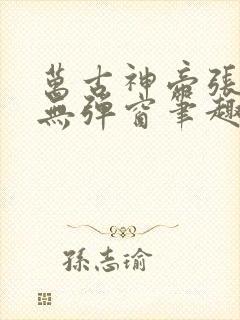 萬古神帝張
無彈窗筆趣
孫志瑜